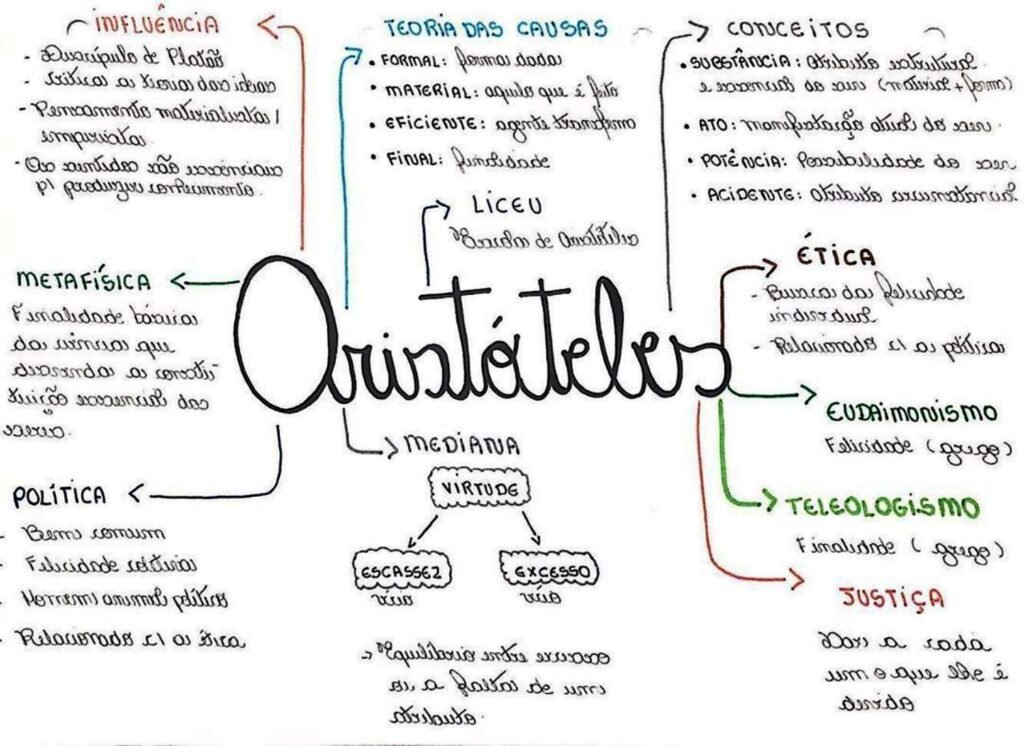 INFLUÊNCIA
- Discípulo de Platão
- critica a teoria das ideias
- Pensamento materialista/
empirista
- Os sentidos são essenciais
p/ produzir conhecimento.
TEORIA DAS CAUSAS
• FORMAL: forma dada
• MATERIAL: aquilo que é feito
• EFICIENTE: agente transforma
• FINAL: finalidade
CONCEITOS
• SUBSTÂNCIA: atributo estrutural
e essencial do ser (matéria + forma)
• ATO: manifestação atual do ser
• POTÊNCIA: Possibilidade do ser
• ACIDENTE: atributo circunstancial
LICEU
Escola de Aristóteles
METAFÍSICA
Finalidade básica
da ciência que
desvenda a consti
tuição essencial dos
seres.
Aristóteles
ÉTICA
- Busca da felicidade
individual
- Relacionado c/ a política
EUDAIMONISMO
Felicidade (grego)
TELEOLOGISMO
Finalidade (grego)
JUSTIÇA
Dar a cada
um o que lhe é
devido
POLÍTICA
- Bem comum
- Felicidade coletiva
- Homem animal político
- Relacionado c/ a ética
MEDIANA
VIRTUDE
ESCASSEZ
vício
EXCESSO
vício
→ Equilíbrio entre excesso
ou a falta de um
atributo.